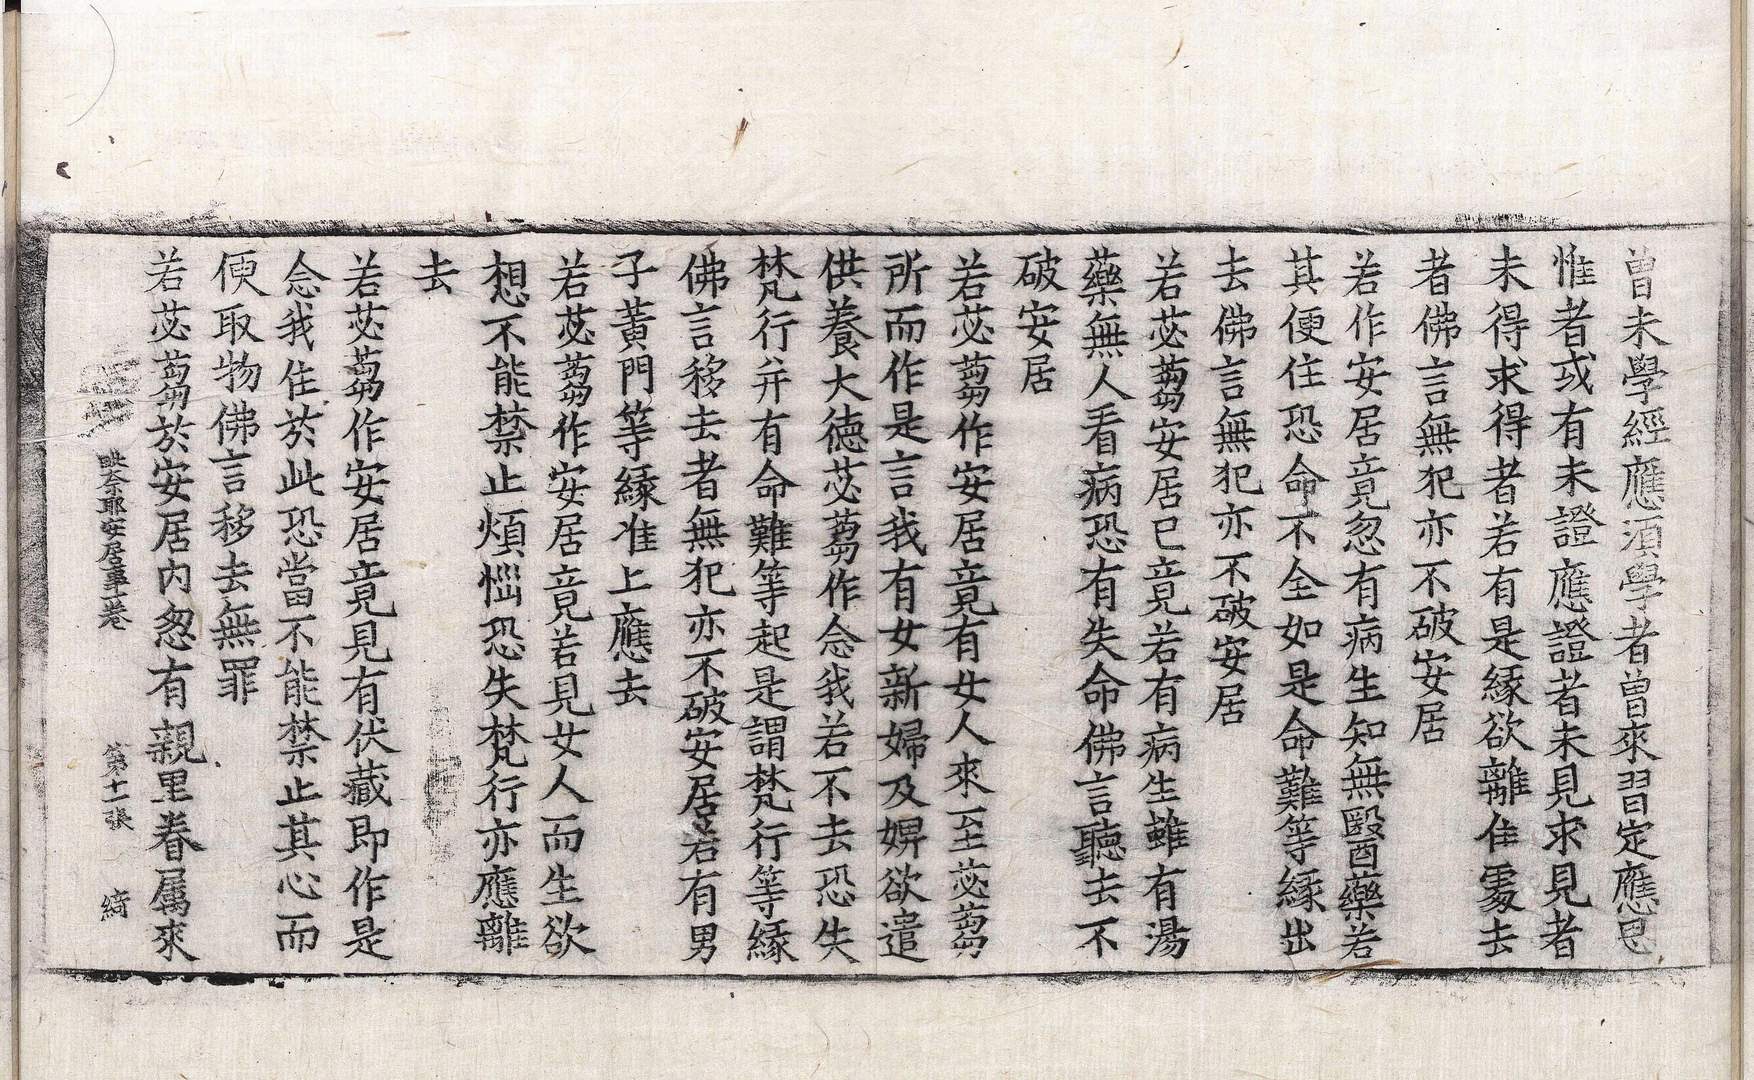 曽未學經應須學者曽來習定應思
惟者或有未證應證者未見求見者
未得求得者若有是緣欲離住處去
者佛言無犯亦不破安居
若作安居竟忽有病生知無毉藥若
其便住恐命不全如是命難等緣出
去佛言無犯亦不破安居
若苾蒭安居已竟若有病生雖有湯
藥無人看病恐有失命佛言聽去不
破安居
若苾蒭作安居竟有女人來至苾蒭
所而作是言我有女新婦及婢欲遣
供養大德苾蒭作念我若不去恐失
梵行并有命難等起是謂梵行等緣
佛言移去者無犯亦不破安居若有男
子黃門等緣准上應去
若苾蒭作安居竟若見女人而生欲
想不能禁止煩惱恐失梵行亦應離
去
若苾蒭作安居竟見有伏藏即作是
念我住於此恐當不能禁止其心而
便取物佛言移去無罪
若苾蒭於安居內忽有親里眷屬來
毗奈耶安居事一卷 第十一張 綺